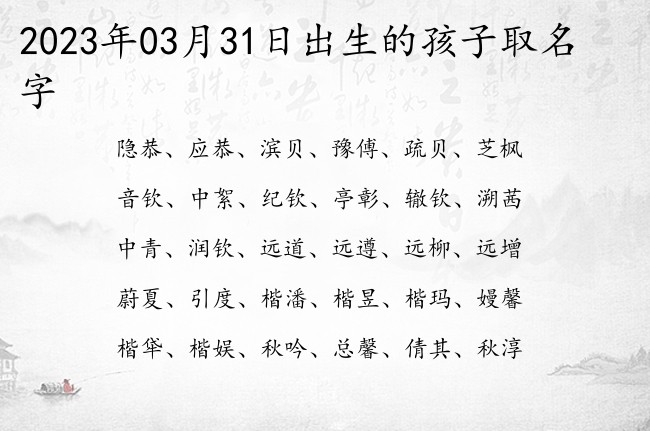 2023年03月31日出生的孩子取名
字
隐恭、应恭、滨贝、豫傅、疏贝、芝枫
音钦、中絮、纪钦、亭彰、辙钦、溯茜
中青、润钦、远道、远遵、远柳、远增
蔚夏、引度、楷潘、楷昱、楷玛、嫚馨
楷牮、楷娱、秋吟、总馨、倩其、秋淳